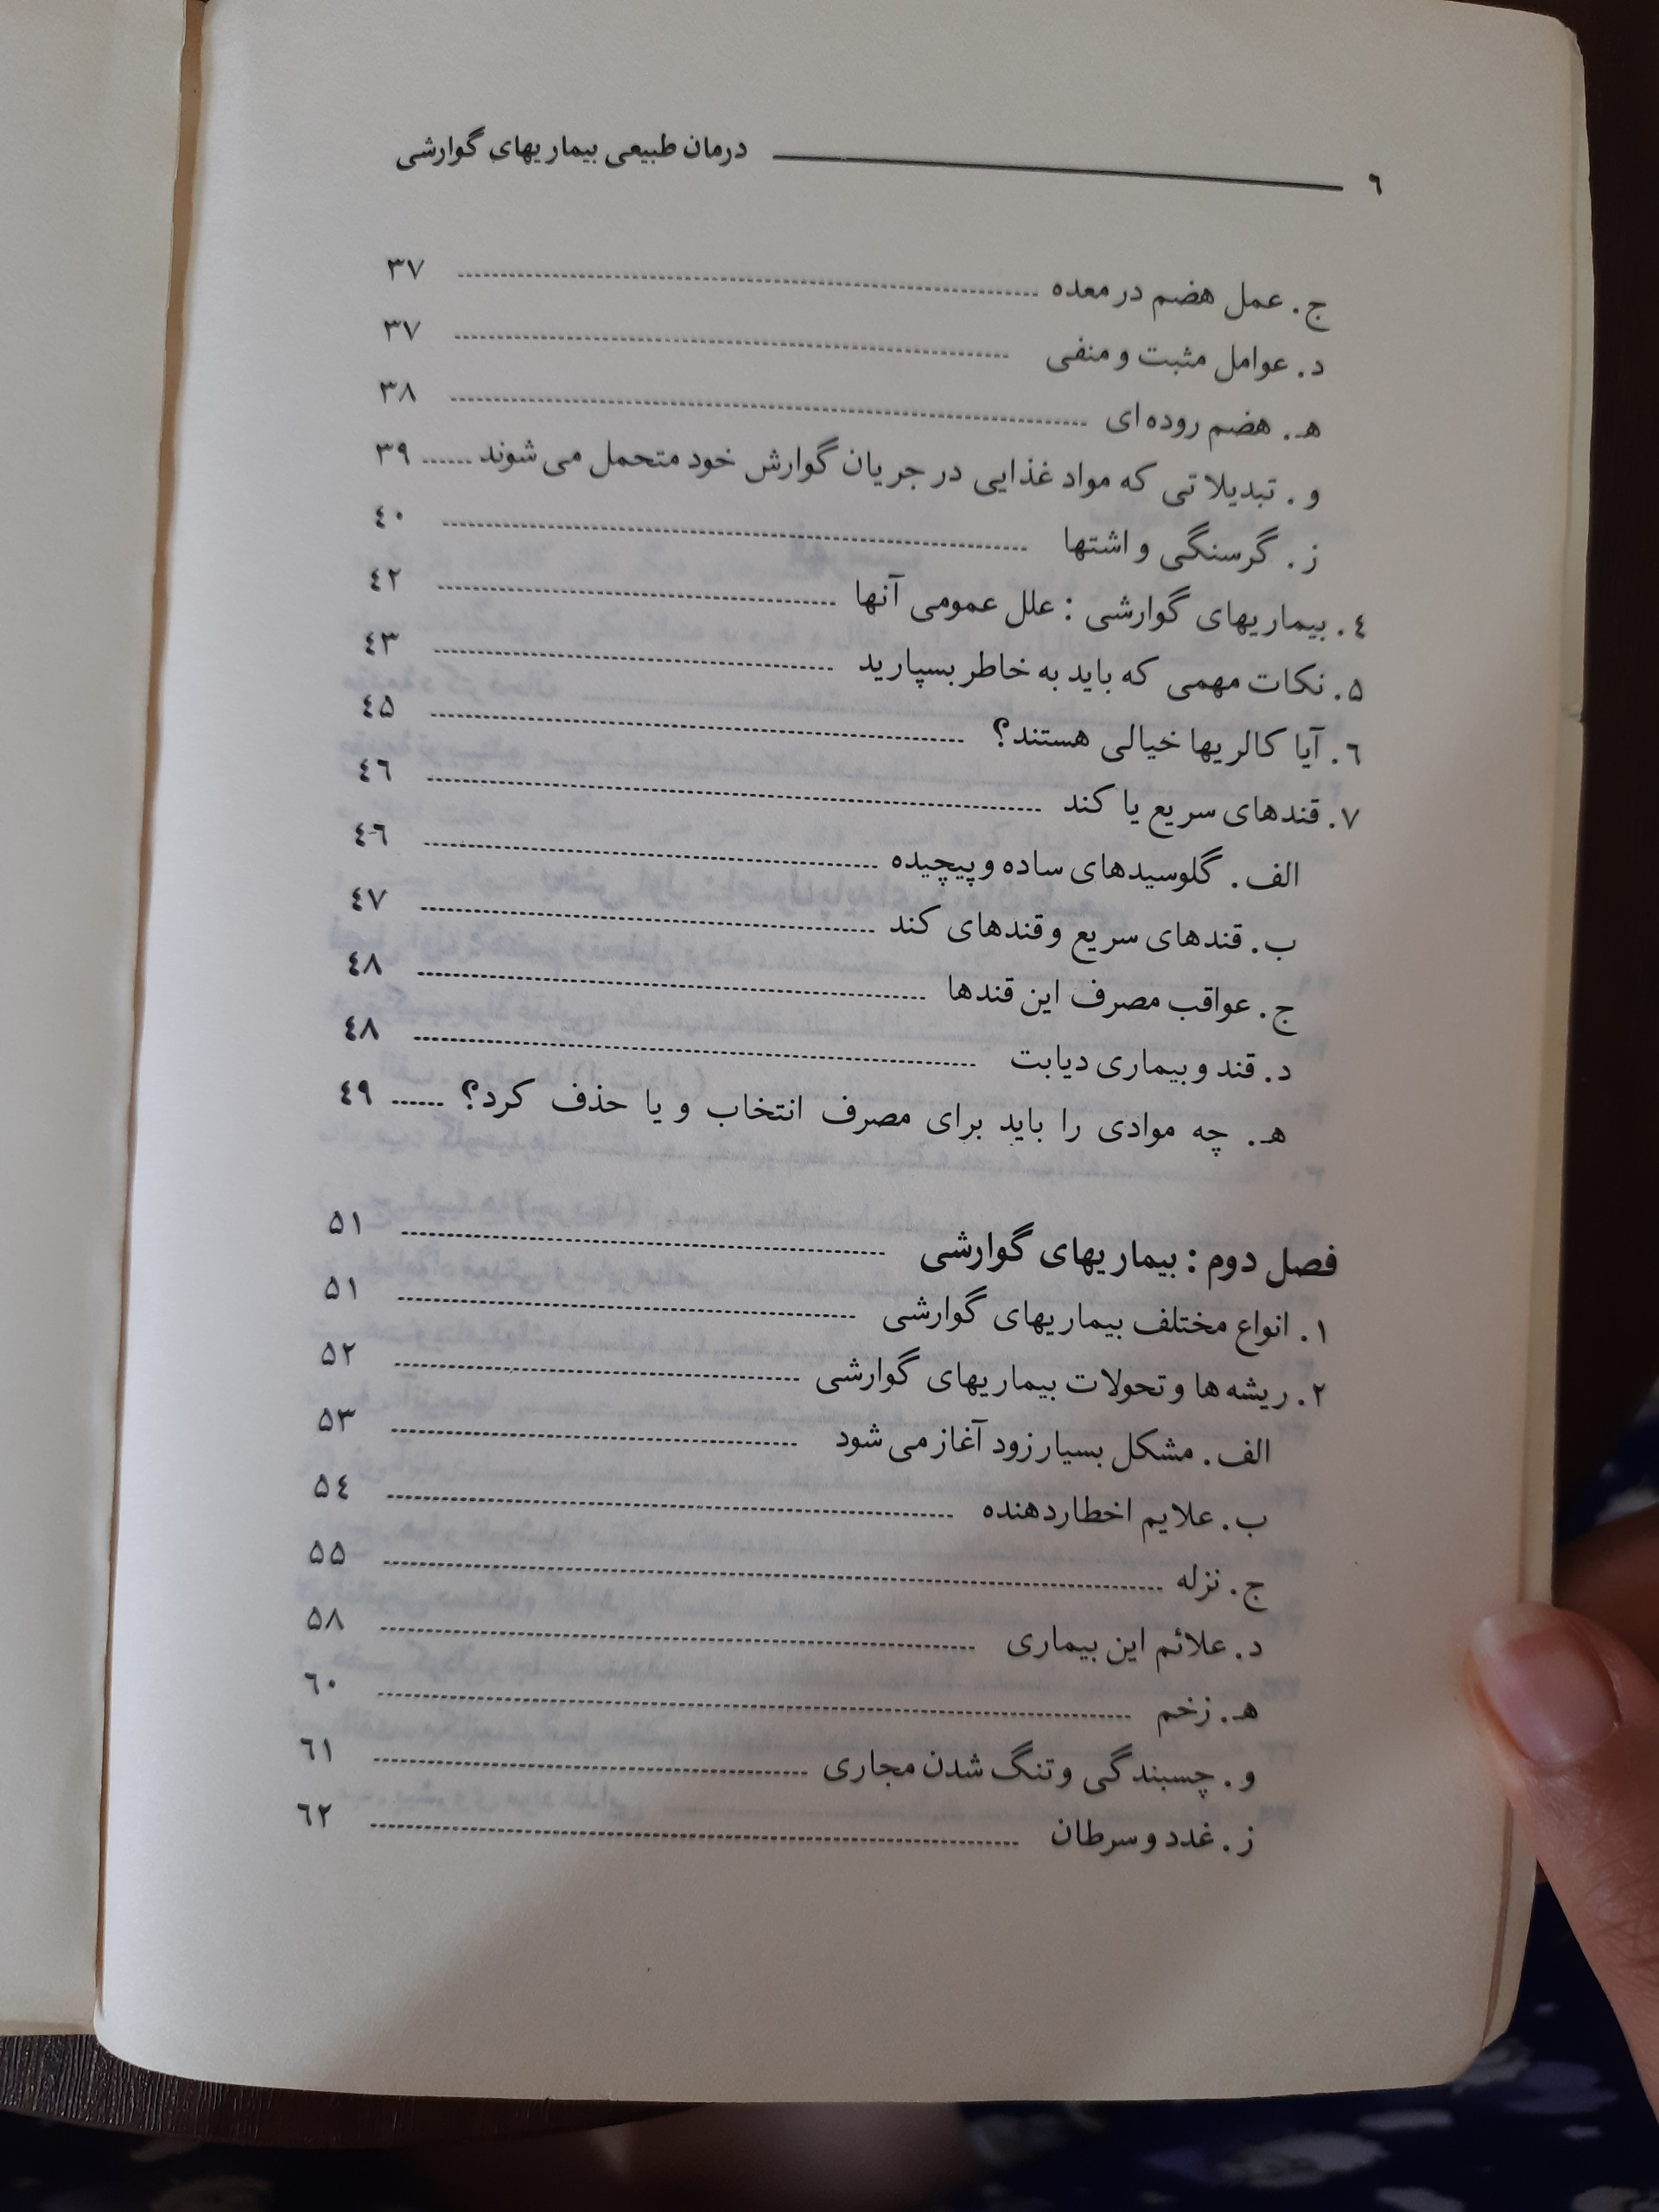 ٦ درمان طبیعی بیماریهای گوارشی
ج. عمل هضم در معده ۳۷
د. عوامل مثبت و منفی ۳۷
هـ. هضم روده‌ای ۳۸
و. تبدیلاتی که مواد غذایی در جریان گوارش خود متحمل می‌شوند ۳۹
ز. گرسنگی و اشتها ٤۰
٤. بیماریهای گوارشی : علل عمومی آنها ٤۲
۵. نکات مهمی که باید به خاطر بسپارید ٤۳
٦. آیا کالریها خیالی هستند؟ ٤۵
۷. قندهای سریع یا کند ٤٦
الف. گلوسیدهای ساده و پیچیده ٤٦
ب. قندهای سریع و قندهای کند ٤۷
ج. عواقب مصرف این قندها ٤۸
د. قند و بیماری دیابت ٤۸
هـ. چه موادی را باید برای مصرف انتخاب و یا حذف کرد؟ ٤۹
فصل دوم : بیماریهای گوارشی ۵۱
۱. انواع مختلف بیماریهای گوارشی ۵۱
۲. ریشه‌ها و تحولات بیماریهای گوارشی ۵۲
الف. مشکل بسیار زود آغاز می‌شود ۵۳
ب. علایم اخطاردهنده ۵٤
ج. نزله ۵۵
د. علائم این بیماری ۵۸
هـ. زخم ٦۰
و. چسبندگی و تنگ شدن مجاری ٦۱
ز. غدد و سرطان ٦۲